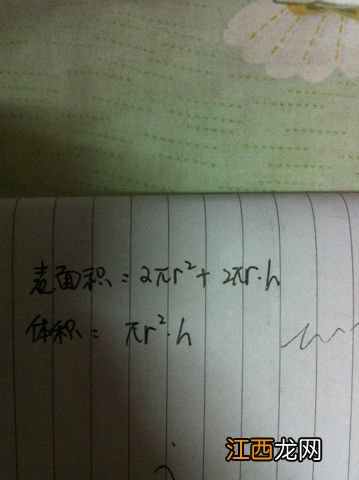 表面积=2πr²+2πr·h
体积=πr²·h
江西龙网